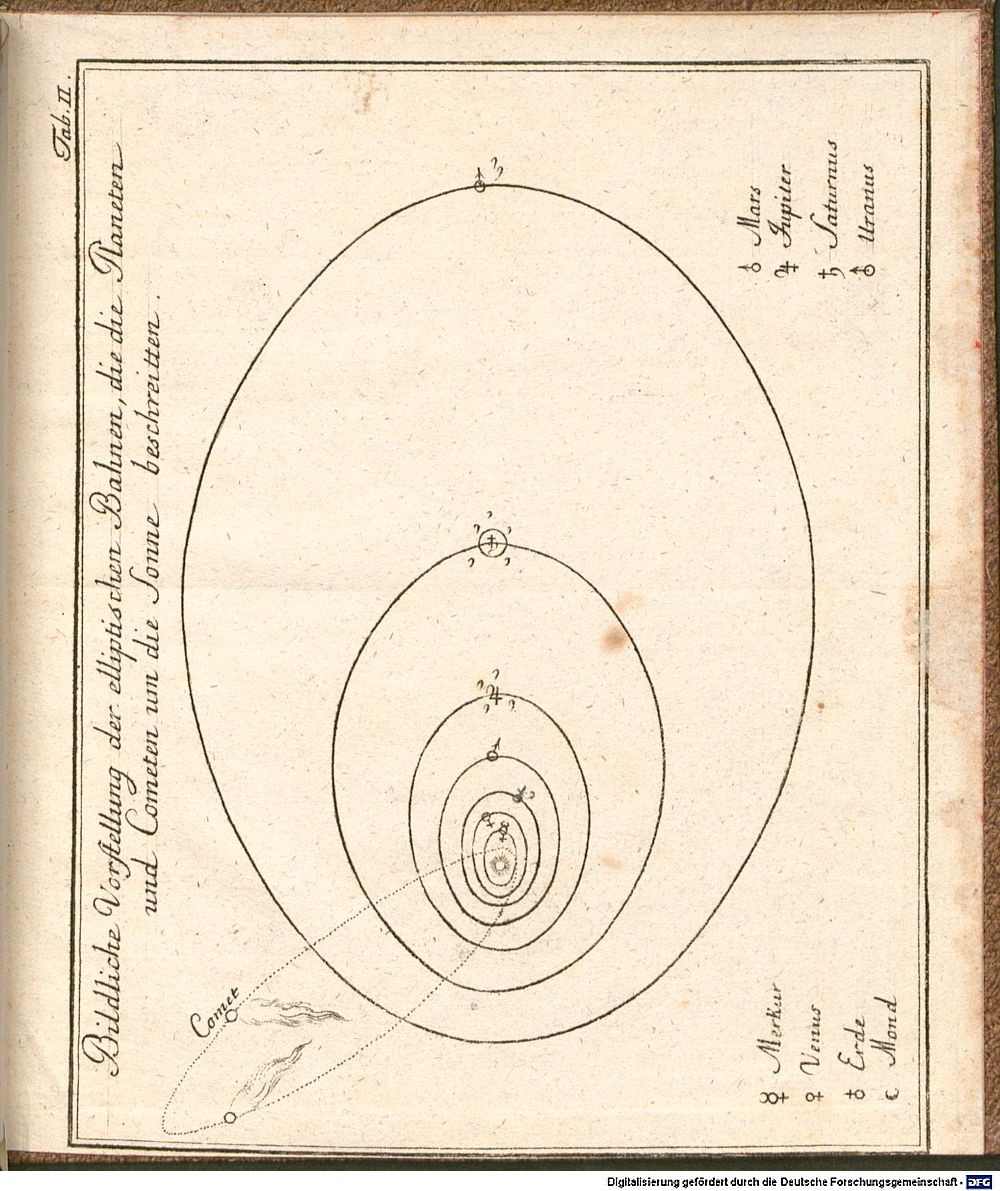 Tab. II.
Bildliche Vorstellung der elliptischen Bahnen, die die Planeten
und Cometen um die Sonne beschreitten.
Comet
☿ Merkur
♀ Venus
♁ Erde
☾ Mond
♂ Mars
♃ Jupiter
♄ Saturnus
⛢ Uranus
Digitalisierung gefördert durch die Deutsche Forschungsgemeinschaft - DFG